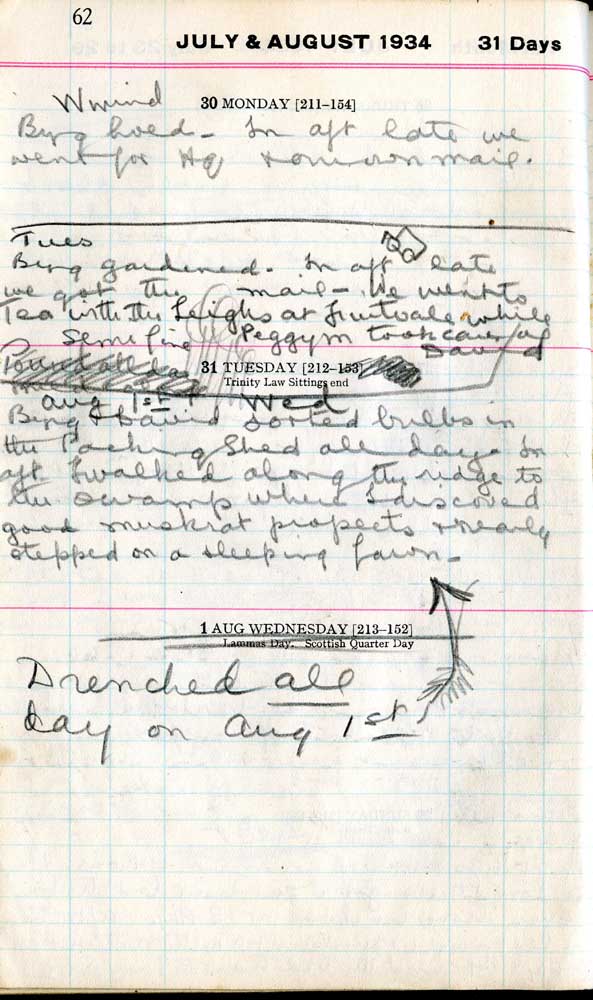 62
JULY & AUGUST 1934 31 Days
30 MONDAY [211–154]
Byng hoed - In aft late we
went for Hq mail.
Tues
Byng gardened. In aft late
we got the mail - We went to
Tea with the Leighs at Fruitvale while
Semi fine Peggy m took care of
David
31 TUESDAY [212–153]
Trinity Law Sittings end
Aug 1st Wed
Byng & David sorted bulbs in
the Packing Shed all day. In
aft I walked along the ridge to
the swamp where I discoved
good muskrat propects & nearly
stepped on a sleeping fawn -
1 AUG WEDNESDAY [213–152]
Lammas Day. Scottish Quarter Day
Drenched all
day on Aug 1st